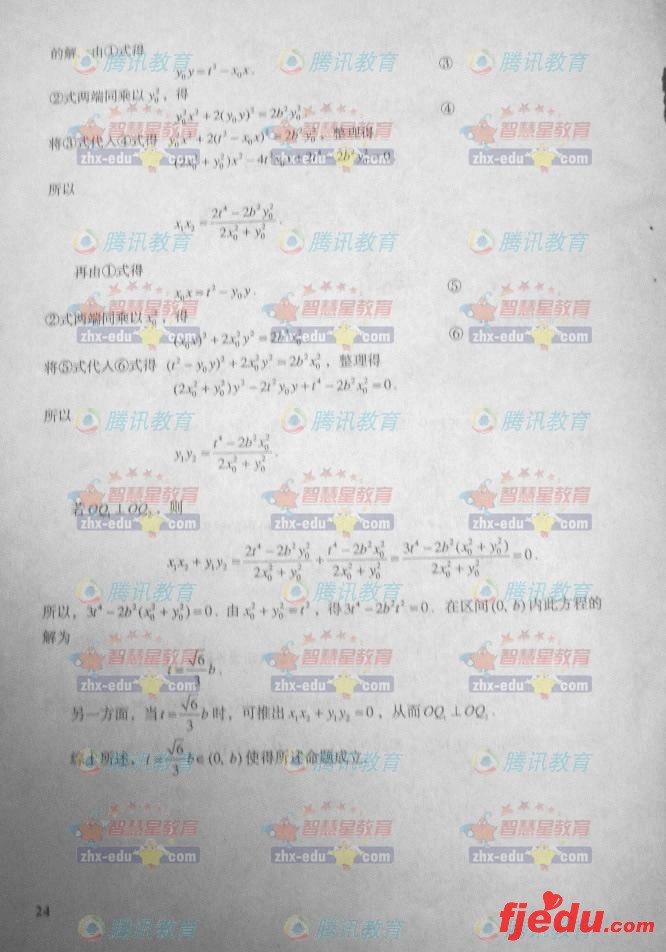 的解. 由①式得
y₀y = t² − x₀x. ③
②式两端同乘以 y₀², 得
y₀²x² + 2(y₀y)² = 2b²y₀². ④
将③式代入④式得 y₀²x² + 2(t² − x₀x)² = 2b²y₀², 整理得
(2x₀² + y₀²)x² − 4t²x₀x + 2t⁴ − 2b²y₀² = 0.
所以
x₁x₂ = (2t⁴ − 2b²y₀²)/(2x₀² + y₀²).
再由①式得
x₀x = t² − y₀y. ⑤
②式两端同乘以 x₀², 得
(x₀x)² + 2x₀²y² = 2b²x₀². ⑥
将⑤式代入⑥式得 (t² − y₀y)² + 2x₀²y² = 2b²x₀², 整理得
(2x₀² + y₀²)y² − 2t²y₀y + t⁴ − 2b²x₀² = 0.
所以
y₁y₂ = (t⁴ − 2b²x₀²)/(2x₀² + y₀²).
若OQ₁⊥OQ₂, 则
x₁x₂ + y₁y₂ = (2t⁴ − 2b²y₀²)/(2x₀² + y₀²) + (t⁴ − 2b²x₀²)/(2x₀² + y₀²) = (3t⁴ − 2b²(x₀² + y₀²))/(2x₀² + y₀²) = 0.
所以, 3t⁴ − 2b²(x₀² + y₀²) = 0. 由 x₀² + y₀² = t², 得 3t⁴ − 2b²t² = 0. 在区间(0, b)内此方程的
解为
t = (√6/3)b.
另一方面, 当 t = (√6/3)b 时, 可推出 x₁x₂ + y₁y₂ = 0, 从而OQ₁⊥OQ₂.
综上所述, t = (√6/3)b ∈ (0, b) 使得所述命题成立.
24
腾讯教育
智慧星教育
zhx-edu com
fjedu.com